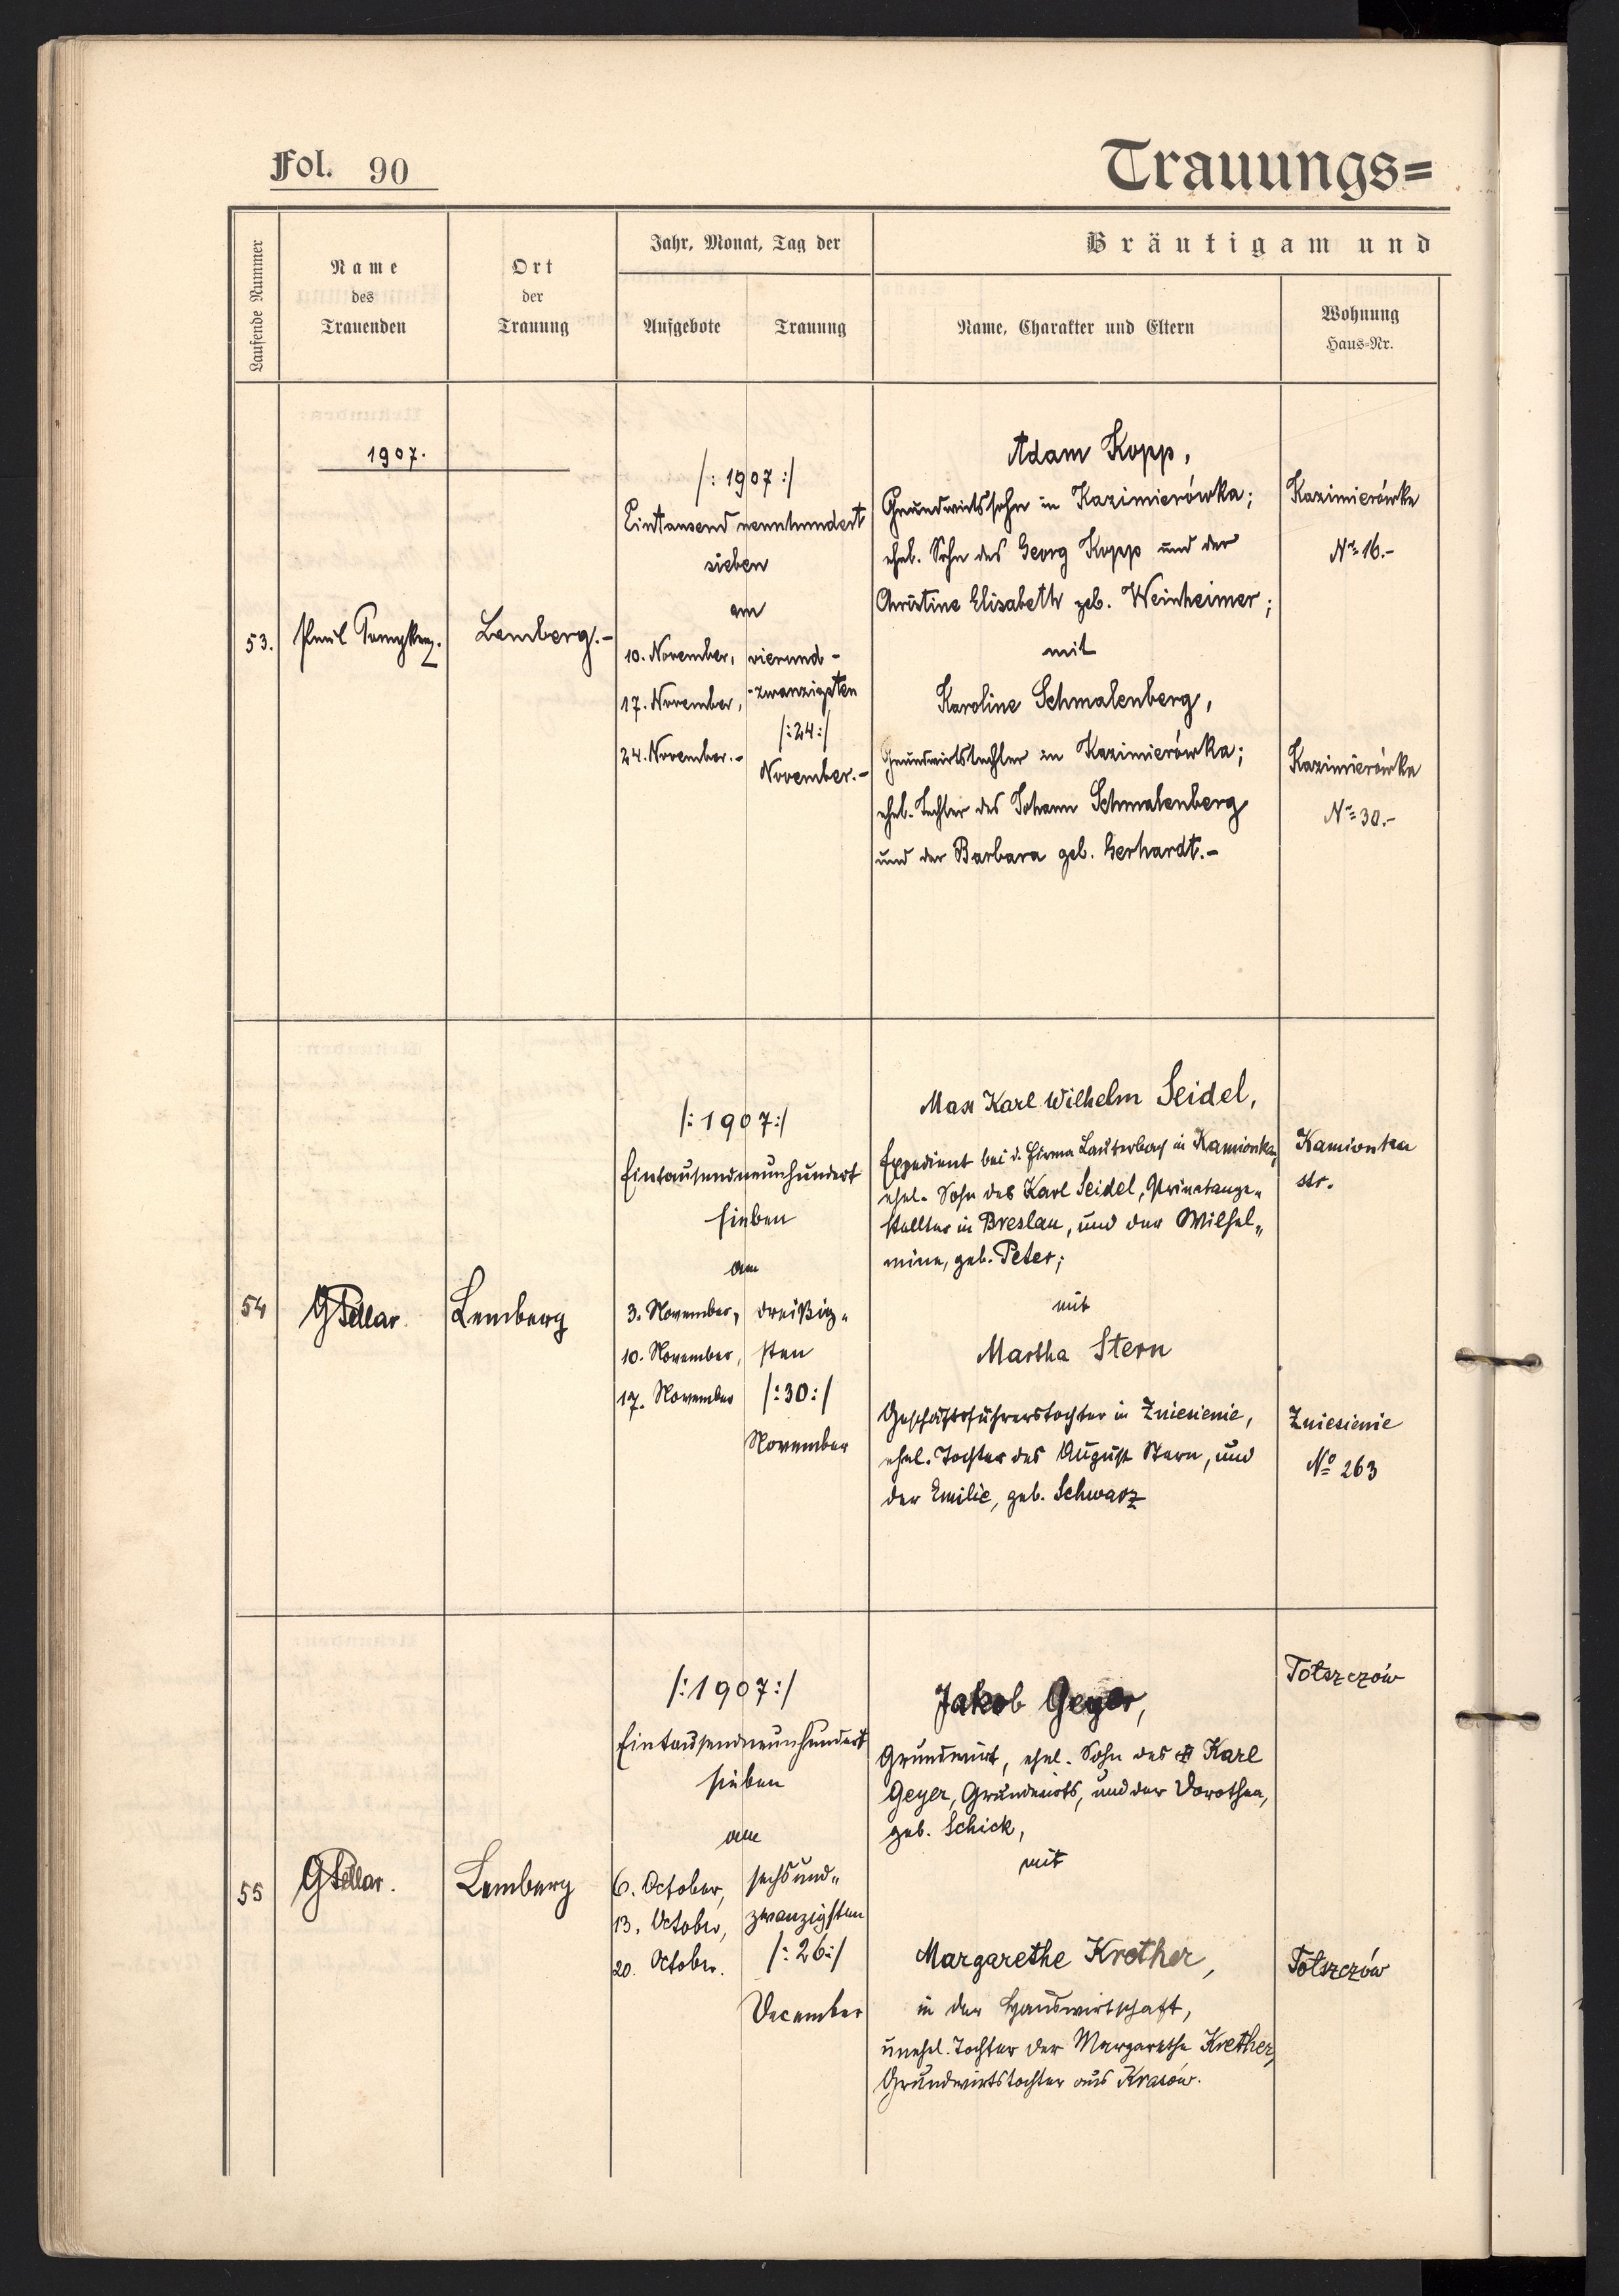 Fol. 90
Trauungs=
Laufende Nummer
Name
des
Trauenden
Ort
der
Trauung
Jahr, Monat, Tag der
Aufgebote
Trauung
Bräutigam und
Name, Charakter und Eltern
Wohnung
Haus-Nr.
1907.
53.
Paul
Lemberg.-
/: 1907 :/
Eintausend neunhundert
sieben
am
10. November,
17. November,
24. November.-
vierund-
-zwanzigsten
/:24:/
November.-
Adam Kopp,
Grundwirtssohn in Kazimierówka;
ehel. Sohn des Georg Kopp und der
Christine Elisabeth geb. Weinheimer;
mit
Karoline Schmalenberg,
Grundwirtstochter in Kazimierówka;
ehel. Tochter des Johann Schmalenberg
und der Barbara geb. Gerhardt.-
Kazimierówka
Nr. 16.-
Kazimierówka
Nr. 30.-
54
Lemberg
/:1907:/
Eintausendneunhundert
sieben
am
3. November,
10. November,
17. November
dreißig„
sten
/:30:/
November
Max Karl Wilhelm Seidel,
Expedient bei d. Firma Lauterbach in Kamionka,
ehel. Sohn des Karl Seidel, Privatange„
stellter in Breslau, und der Wilhel„
mine, geb. Peter;
mit
Martha Stern
Geschäftsführerstochter in Zniesienie,
ehel. Tochter des August Stern, und
der Emilie, geb. Schwarz
Kamionka
str.
Zniesienie
No 263
55
Lemberg
/:1907:/
Eintausendneunhundert
sieben
am
6. October,
13. October,
20. October.
sechsund„
zwanzigsten
/:26:/
December
Jakob Geyer,
Grundwirt, ehel. Sohn des Karl
Geyer, Grundwirts, und der Dorothea,
geb. Schick,
mit
Margarethe Krether,
in der Hauswirtschaft,
unehel. Tochter der Margarethe Krether,
Grundwirtstochter aus Krasów.
Totszczów
Totszczów